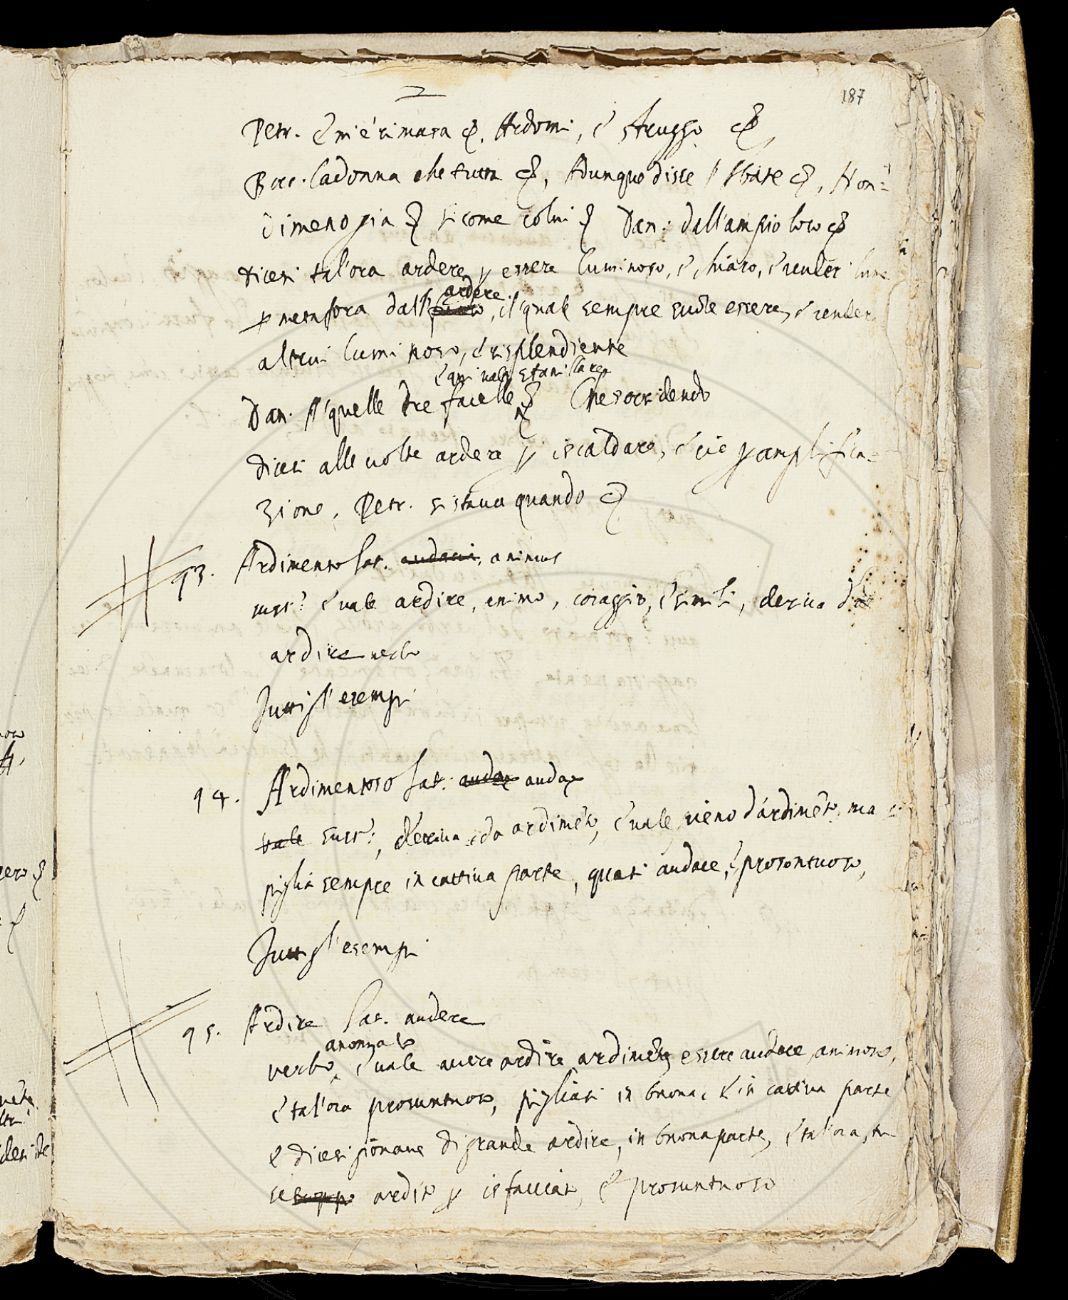 187
Petr. E m'è rimasa &c. Ardomi, e struggo &c.
Bocc. La donna che tutta &c, Adunque disse l'Abate &c, Non-
dimeno già &c si come colui &c Dan. dall'ampio loco &c
dicesi tal'ora ardere p essere luminoso, e chiaro, e render lume
p metafora dall' ardere, il quale sempre suole essere, e render
altrui luminoso, e risplendiente
e qui vale sfavillare
Dan. A quelle tre facelle &c Che s'occidendo
dicesi alle volte ardere p iscaldare, e ciò p amplifica-
zione, Petr. si stava quando &c
93. Ardimento Lat. audacia, animus
sust: e vale ardire, animo, coraggio, e simili, deriva da
ardire verbo
Tutti gl'esempi
94. Ardimentoso Lat. audax audax
vale sust:, deriva da ardimẽto, e vale pieno d'ardimẽto, ma si
piglia sempre in cattiva parte, quasi audace, e prosontuoso,
Tutti gl'esempi
95. Ardire Lat. audere
anomalo
verbo, e vale avere ardire ardimẽto essere audace, animoso,
e tal'ora prosuntuoso, pigliasi in buona, e in cattiva parte
e dicesi giovane di grande ardire, in buona parte, e tal'ora, tu
se troppo ardito p isfacciato, e prosuntuoso